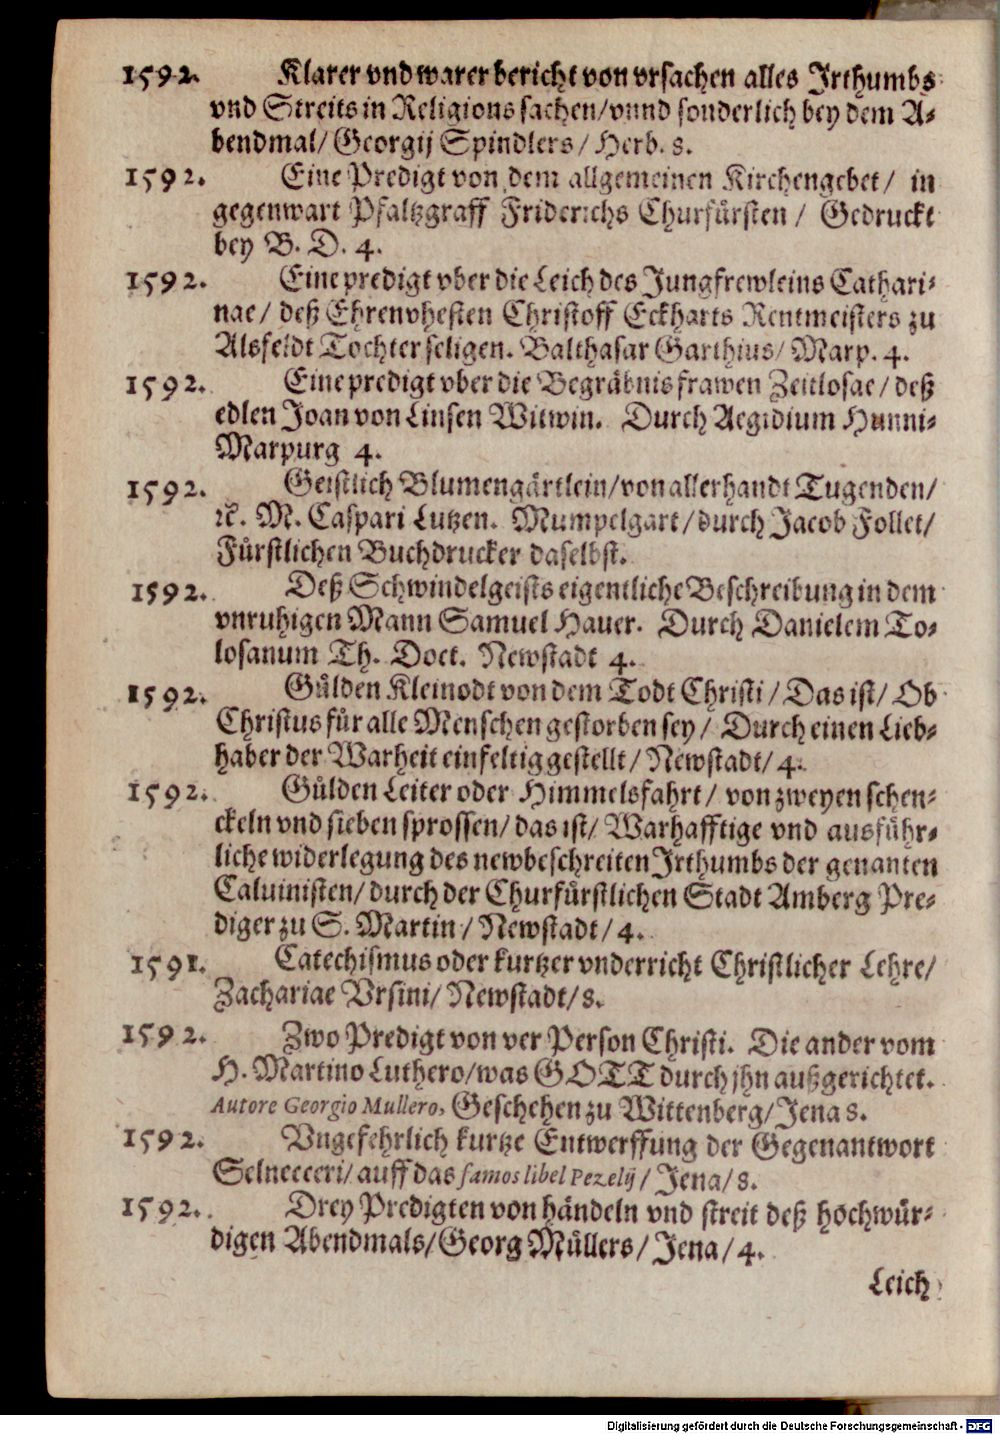 1592. Klarer vnd warer bericht von vrsachen alles Jrthumbs
vnd Streits in Religions sachen/vnnd sonderlich bey dem A-
bendmal/ Georgij Spindlers/ Herb. 8.
1592. Eine Predigt von dem allgemeinen Kirchengebet/ in
gegenwart Pfaltzgraff Friderichs Churfürsten/ Gedruckt
bey B. D. 4.
1592. Eine predigt vber die Leich des Jungfrewleins Cathari-
nae/ deß Ehrenvhesten Christoff Eckharts Rentmeisters zu
Alsfeldt Tochter seligen. Balthasar Garthius/ Marp. 4.
1592. Eine predigt vber die Begräbnis frawen Zeitlosae/ deß
edlen Joan von Linsen Witwin. Durch Aegidium Hunni-
Marpurg 4.
1592. Geistlich Blumengärtlein/von allerhandt Tugenden/
ꝛc. M. Caspari Lutzen. Mumpelgart/durch Jacob Follet/
Fürstlichen Buchdrucker daselbst.
1592. Deß Schwindelgeists eigentliche Beschreibung in dem
vnruhigen Mann Samuel Hauer. Durch Danielem To-
losanum Th. Doct. Newstadt 4.
1592. Gülden Kleinodt von dem Todt Christi/ Das ist/ Ob
Christus für alle Menschen gestorben sey/ Durch einen Lieb-
haber der Warheit einfeltig gestellt/ Newstadt/ 4.
1592. Gülden Leiter oder Himmelsfahrt/ von zweyen schen-
ckeln vnd sieben sprossen/ das ist/ Warhafftige vnd ausführ-
liche widerlegung des newbeschreiten Jrthumbs der genanten
Caluinisten/ durch der Churfürstlichen Stadt Amberg Pre-
diger zu S. Martin/ Newstadt/ 4.
1591. Catechismus oder kurtzer vnderricht Christlicher Lehre/
Zachariae Vrsini/ Newstadt/ 8.
1592. Zwo Predigt von ver Person Christi. Die ander vom
H. Martino Luthero/was GOTT durch jhn außgerichtet.
Autore Georgio Mullero, Geschehen zu Wittenberg/ Jena 8.
1592. Vngefehrlich kurtze Entwerffung der Gegenantwort
Selnecceri/ auff das famos libel Pezelij/ Jena/ 8.
1592. Drey Predigten von händeln vnd streit deß hochwür-
digen Abendmals/ Georg Müllers/ Jena/ 4.
Leich
Digitalisierung gefördert durch die Deutsche Forschungsgemeinschaft - DFG